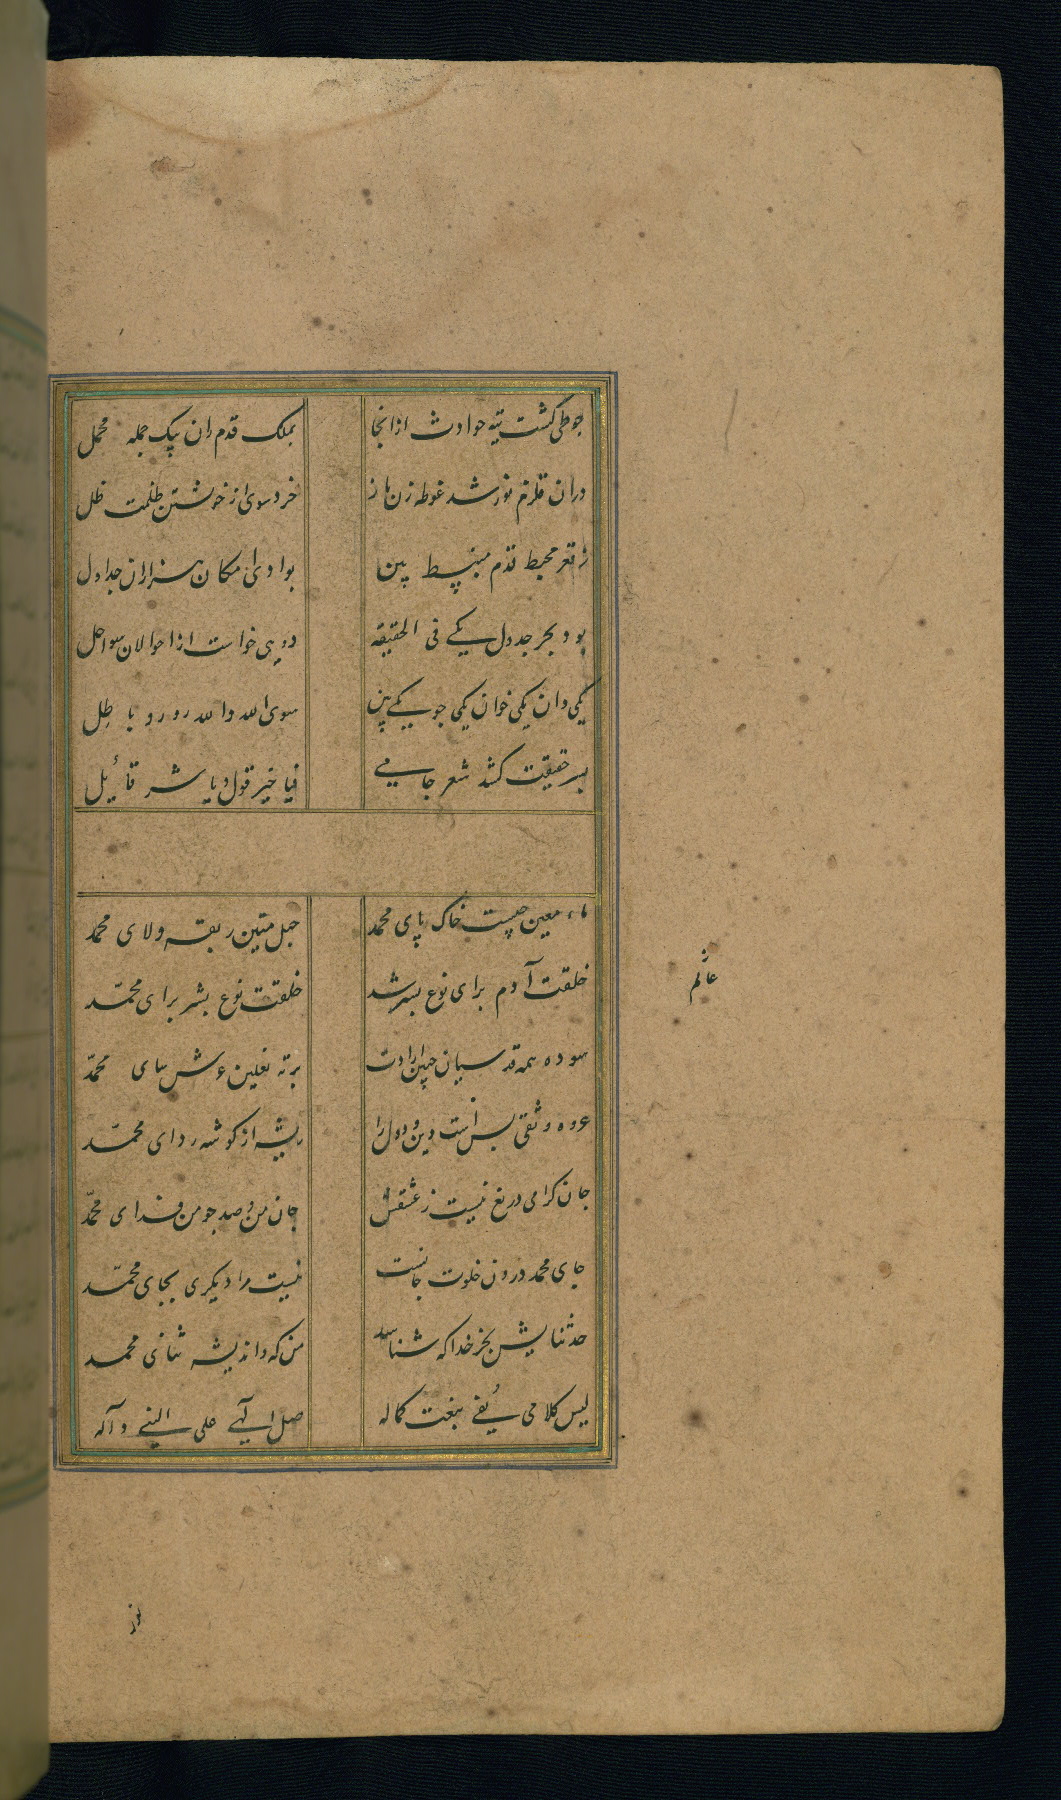 چو طی گشت تیه حوادث از انجا بملک قدم ران بیک جمله محمل
دران قلزم نور شد غوطه زن باز خرد سوی از خویشتن ظلمت ظل
ز قعر محیط قدم منبسط بین بوادی امکان هزاران جداول
بود بحر جدول یکی فی الحقیقه دویی خواست از احولان سواحل
یکی دان یکی خوان یکی جو یکی بین سوی الله والله زور و باطل
بسر حقیقت کشد شعر جامی فیا خیر قول و یا شر قائل
ماء معین چیست خاک پای محمد حبل متین ربقه ولای محمد
خلقت آدم برای نوع بشر شد خلقت نوع بشر برای محمّد
سوده همه قدسیان جبین ارادت برته نعلین عرش سای محمّد
عروه وثقی بس است دین و دول را ریشه از گوشه ردای محمّد
جان گرامی دریغ نیست ز عشقش جان من و صد چو من فدای محمّد
جای محمد درون خلوت جانست نیست مرا دیگری بجای محمّد
حد ثنایش بجز خدا که شناسد من که و اندیشه ثنای محمد
لیس کلامی یفی بنعت کماله صل الهی علی النبی و آله
عالم
نور